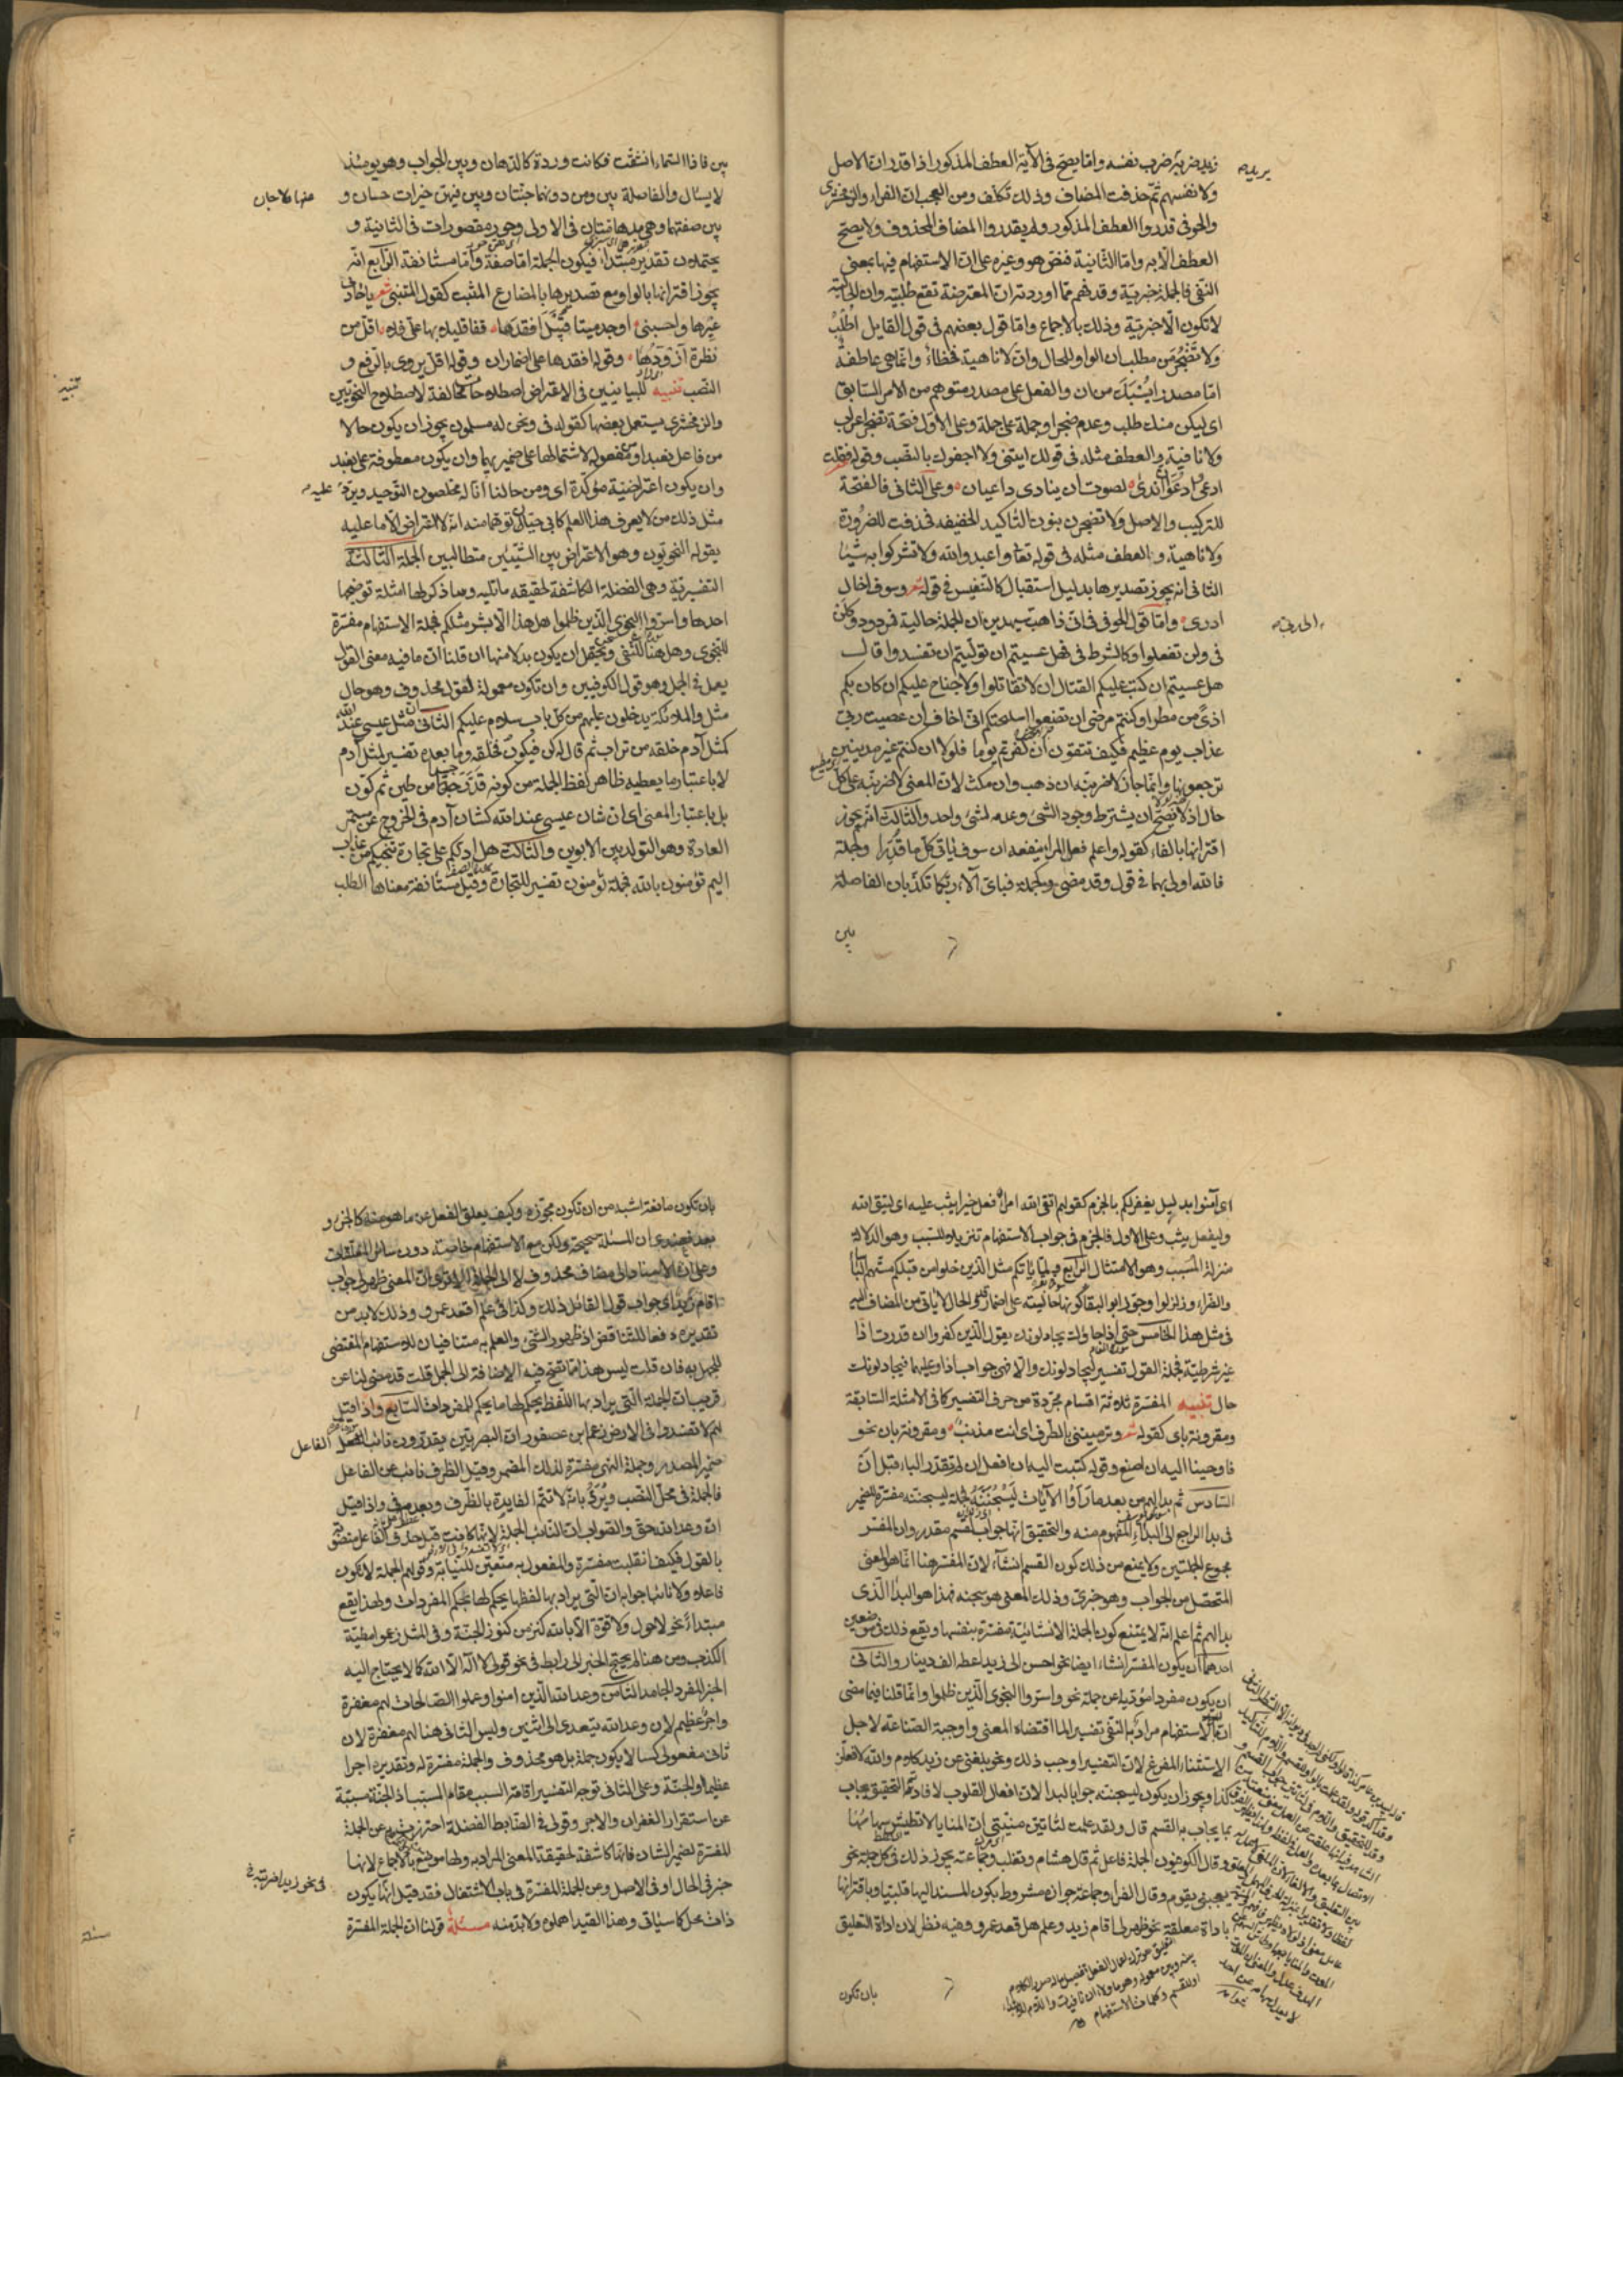 زيد ضربته ضرب نفسه وانما يصح فى الآية العطف المذكور اذا قدر ان الاصل
ولانفسهم ثم حذفت المضاف وذلك تكلف ومن العجب ان الفراء والزمخشرى
والحوفى قدروا العطف المذكور ولم يقدروا المضاف المحذوف ولا يصح
العطف الا به واما الثانية فنص هو وغيره على ان الاستفهام فيها بمعنى
النفى فالجملة خبرية وقد فهم مما اوردته ان المعترضة تقع طلبية وان الحالية
لا تكون الا خبرية وذلك بالاجماع واما قول بعضهم فى قول القايل اطلب
ولا تضجر من مطلب ان الواو للحال وان لا ناهية فخطاء وانما هى عاطفة
اما مصدرا يسبك من ان والفعل على مصدر متوهم من الامر السابق
اى ليكن منك طلب وعدم ضجر او جملة على جملة وعلى الاول ففتحة تضجر اعراب
ولا نافية والعطف مثله فى قولك ايتنى ولا اجفوك بالنصب وقوله فقلت
ادعى وادعو ان اندى لصوت ان ينادى داعيان وعلى الثانى فالفتحة
للتركيب والاصل ولا تضجرن بنون التاكيد الخفيفه فحذفت للضرورة
ولا ناهية والعطف مثله فى قوله تعا واعبدوا الله ولا تشركوا به شيئا
الثانى انه يجوز تصديرها بدليل استقبال كالتنفيس فى قوله شعر وسوف اخال
ادرى واما قول الحوفى فى انى ذاهب سيهدين ان الجملة حالية فمردود وكلن
فى ولن تفعلوا وكالشرط فى فهل عسيتم ان توليتم ان تفسدوا قال
هل عسيتم ان كتب عليكم القتال ان لا تقاتلوا ولا جناح عليكم ان كان بكم
اذى من مطر او كنتم مرضى ان تضعوا اسلحتكم انى اخاف ان عصيت ربى
عذاب يوم عظيم فكيف تتقون ان كفرتم يوما فلولا ان كنتم غير مدينين
ترجعونها وانما جاز لاضربنه ان ذهب وان مكث لان المعنى لاضربنه على كل
حال اذ لا يصح ان يشترط وجود الشئ وعدمه لشئ واحد والثالث انه يجوز
اقترانها بالفاء كقوله واعلم فعلم المرء ينفعه ان سوف ياتى كل ما قدرا وكجملة
فالله اولى بهما فى قول وقد مضى وكجملة فباى آلاء ربكما تكذبان الفاصلة
بين
بين فاذا انشقت السماء فكانت وردة كالدهان وبين الجواب وهو يومئذ
لا يسئال والفاصلة بين ومن دونهما جنتان وبين فيهن خيرات حسان و
بين صفتهما وهى مدهامتان فى الاولى وحور مقصورات فى الثانية و
يحتملان تقدير مبتدا فيكون الجملة اما صفة واما مستانفة الرابع انه
يجوز اقترانها بالواو مع تصديرها بالمضارع المثبت كقول المتنبى شعر يا حادى
عيرها واحسبنى اوجد ميتا قبيل افقدها قفا قليلا بها على فلا اقل من
نظرة ازودها وقوله افقدها على اضمار ان وقوله اقل يروى بالرفع و
النصب تنبيه للبيانيين فى الاعتراض اصطلاحات مخالفة لاصطلاح النحويين
والزمخشرى يستعمل بعضها كقوله فى ونحن له مسلمون يجوز ان يكون حالا
من فاعل نعبد او من مفعوله لاشتمالها على ضميريهما وان يكون معطوفة على نعبد
وان يكون اعتراضية مؤكدة اى ومن حالنا انا له مخلصون التوحيد ويرد عليه
مثل ذلك من لا يعرف هذا العلم كابى حيان توهما منه انه لا اعتراض الا ما
يقوله النحويون وهو الاعتراض بين الشيئين متطالبين الجملة الثالثة
التفسيرية وهى الفضلة الكاشفة لحقيقه ما تليه وساذكر لها امثلة توضحها
احدها واسروا النجوى الذين ظلموا هل هذا الا بشر مثلكم فجملة الاستفهام مفسرة
للنجوى وهل هنا للنفى ويحتمل ان يكون بدلا منها ان قلنا ان ما فيه معنى القول
يعمل فى الجمل وهو قول الكوفيين وان تكون معمولة لقول محذوف وهو حال
مثل والملائكة يدخلون عليهم من كل باب سلام عليكم الثانى ان مثل عيسى عند الله
كمثل آدم خلقه من تراب ثم قال له كن فيكون فخلقه وما بعده تفسير لمثل آدم
لا باعتبار ما يعطيه ظاهر لفظ الجملة من كونه قدر جسدا من طين ثم كون
بل باعتبار المعنى اى ان شان عيسى عند الله كشان آدم فى الخروج عن مستمر
العادة وهو التولد بين الابوين والثالث هل ادلكم على تجارة تنجيكم من عذاب
اليم تؤمنون بالله فجملة تؤمنون تفسير للتجارة وقيل مستانفة معناها الطلب
تنبيه
اى آمنوا بدليل يغفر لكم بالجزم كقولهم اتقى الله امرؤ فعل خيرا يثب عليه اى ليتق الله
وليفعل يثب وعلى الاول فالجزم فى جواب الاستفهام تنزيلا للسبب وهو الدلالة
منزلة المسبب وهو الامتثال الرابع ولما ياتكم مثل الذين خلوا من قبلكم مستهم البأساء
والضراء وزلزلوا وجوز ابو البقا كونها حالية على اضمار قد والحال لا ياتى من المضاف اليه
فى مثل هذا الخامس حتى اذا جاؤك يجادلونك يقول الذين كفروا ان قدرت اذا
غير شرطية فجملة القول تفسير ليجادلونك والا فهى جواب اذا وعليهما فيجادلونك
حال تنبيه المفسرة ثلاثة اقسام مجردة من حرف التفسير كما فى الامثلة السابقة
ومقرونة باى كقوله شعر وترميننى بالطرف اى انت مذنب ومقرونة بان نحو
فاوحينا اليه ان اصنع وقوله كتبت اليه ان افعل ان لم تقدر الباء قبل ان
السادس ثم بدا لهم من بعد ما راوا الآيات ليسجننه فجملة ليسجننه مفسرة للضمير
فى بدا الراجع الى البداء المفهوم منه والتحقيق انها جواب لقسم مقدر وان المفسر
مجموع الجملتين ولا يمنع من ذلك كون القسم انشاء لان المفسر هنا انما هو المعنى
المتحصل من الجواب وهو خبرى وذلك المعنى هو سجنه فهذا هو البداء الذى
بدا لهم ثم اعلم انه لا يمتنع كون الجملة الانشائية مفسرة بنفسها ويقع ذلك فى موضعين
احدهما ان يكون المفسر انشاء ايضا نحو احسن الى زيد اعطه الف دينار والثانى
ان يكون مفردا مؤديا عن جملة نحو واسروا النجوى الذين ظلموا وانما قلنا فيما مضى
ان الاستفهام مراد به النفى تفسيرا لما اقتضاه المعنى واوجبته الصناعة لاجل
الاستثناء المفرغ لان التفسير اوجب ذلك ونحو بلغنى عن زيد كلام والله لافعلن
كذا ويجوز ان يكون ليسجننه جوابا لبدا لان افعال القلوب لافادتها التحقيق يجاب
بما يجاب به القسم قال ولقد علمت لتاتين منيتى ان المنايا لا تطيش سهامها
وقال الكوفيون الجملة فاعل ثم قال هشام وثعلب وجماعة يجوز ذلك فى كل جملة نحو
يعجبنى يقوم وقال الفراء وجماعة جوازه مشروط بكون المسند اليها قلبيا وباقترانها
باداة معلقة نحو ظهر لى اقام زيد وعلم هل قعد عمرو وفيه نظر لان اداة التعليق
بان تكون
بان تكون مانعة اشبه من ان تكون مجوزة وكيف يعلق الفعل عن ما هو منه كالجزء و
بعد فعندى ان المسئلة صحيحة ولكن مع الاستفهام خاصة دون سائر المعلقات
وعلى ان الاسناد الى مضاف محذوف لا الى الجملة الاخرى ان المعنى ظهر لى جواب
اقام زيد اى جواب قول القائل ذلك وكذا فى علم اقعد عمرو وذلك لا بد من
تقديره دفعا للتناقض اذ ظهور الشئ والعلم به متنافيان للاستفهام المقتضى
للجهل به فان قلت ليس هذا مما تصح فيه الاضافة الى الجمل قلت قد مضى لنا عن
قريب ان الجملة التى يراد بها اللفظ يحكم لها ما يحكم للمفردات السابع واذا قيل
لهم لا تفسدوا فى الارض زعم ابن عصفور ان البصريين يقدرون نائب الفاعل
ضمير المصدر وجملة النهى مفسرة لذلك المضمر وقيل الظرف نائب عن الفاعل
فالجملة فى محل النصب ويرد بانه لا تتم الفايدة بالظرف وبعدمه فى واذا قيل
ان وعد الله حق والصواب ان النائب الجملة لانها كانت قبل حذف الفاعل منصوبة
بالقول فكيف انقلبت مفسرة والمفعول به متعين للنيابة وقولهم الجملة لا تكون
فاعلا ولا نائبا جوابه ان التى يراد بها لفظها يحكم لها بحكم المفردات ولهذا يقع
مبتداء نحو لا حول ولا قوة الا بالله كنز من كنوز الجنة وفى المثل زعموا مطية
الكذب ومن هنا لم يحتج الخبر الى رابط فى نحو قولى لا اله الا الله كما لا يحتاج اليه
الخبر المفرد الجامد الثامن وعد الله الذين امنوا وعملوا الصالحات لهم مغفرة
واجر عظيم لان وعد الله يتعدى الى اثنين وليس الثانى هنا لهم مغفرة لان
ثانى مفعولى كسا لا يكون جملة بل هو محذوف والجملة مفسرة له وتقديره اجرا
عظيما او الجنة وعلى الثانى توجه التفسير اقامة السبب مقام المسبب اذ الجنة مسببة
عن استقرار الغفران والاجر وقولى فى الضابط الفضلة احترزت به عن الجملة
المفسرة لضمير الشان فانها كاشفة لحقيقة المعنى المراد به ولها موضع بالاجماع لانها
خبر فى الحال او فى الاصل وعن الجملة المفسرة فى باب الاشتغال فقد قيل انها يكون
فى نحو زيدا ضربته
ذات محل كما سياتى وهذا القيد اهملوه ولا بد منه مسئلة قولنا ان الجملة المفسرة
مسئلة